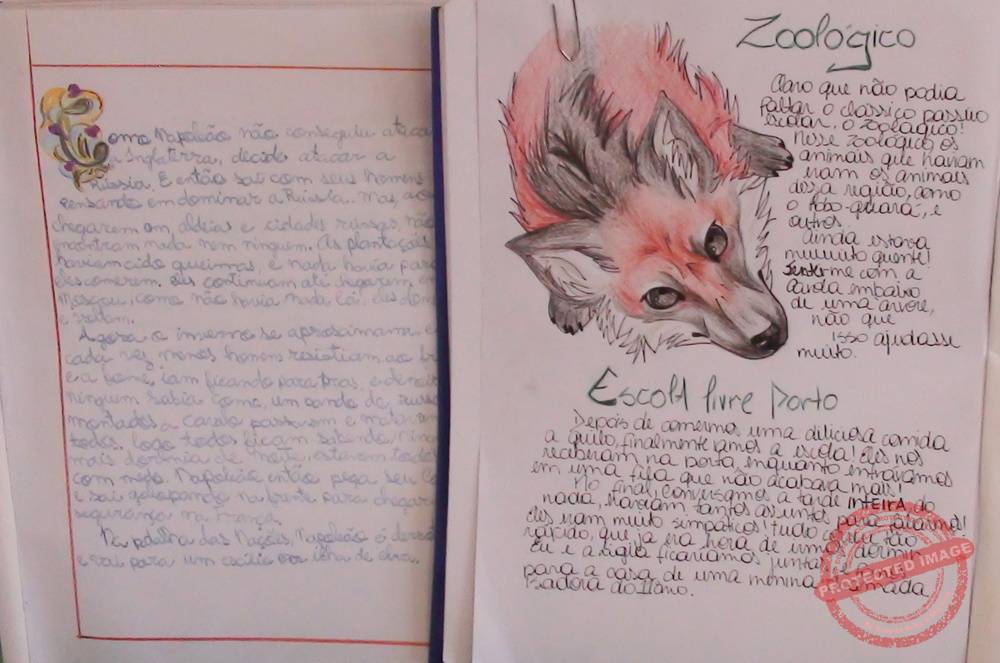 Como Napoleão não conseguiu ataca
a Inglaterra, decide atacar a
Rússia. E então sai com seus homens
pensando em dominar a Rússia. Mas, ao
chegarem em, aldeias e cidades russas, não
encontram nada nem ninguem. As plantações
haviam sido queimas, e nada havia para
eles comerem. Eles continuam até chegarem em
Moscou, como não havia nada lá, eles dom
e voltam.
Agora o inverno se aproximava e
cada vez menos homens resistiam ao
e a fome, iam ficando para tras, e
ninguem sabia como, um bando de russos
montados a cavalo passavam e matavam
todos. Logo todos ficam sabendo, ning
mais dormia de noite, estavam todos
com medo. Napoleão então pega seu
e sai galopando na frente para chegar
segurança na França.
Na batalha das Nações, Napoleão é
e vai para um exílio na ilha de
Zoológico
Claro que não podia
faltar o clássico passeio
escolar, o zoológico!
Nesse zoológico os
animais que haviam
eram os animais
dessa região, como
o lobo-guará, e
outros
Ainda estava
muuuito quente!
Sentei-me com a
embaixo
de uma árvore,
não que
isso ajudasse
muito.
Escola livre Porto
Depois de comermos uma deliciosa comida
a quilo, finalmente iamos a escola! Eles nos
receberam na porta, enquanto entravamos
em uma fila que não acabava mais!
No final, conversamos a tarde INTEIRA do
nada, haviam tantos assuntos para falarmos!
eles eram muito simpáticos! tudo tão
rápido, que ja era hora de irmos dormir
Eu e a Ligia ficariamos juntas,
para a casa de uma menina chamada
Isadora do 11ano.
PROTECTED IMAGE